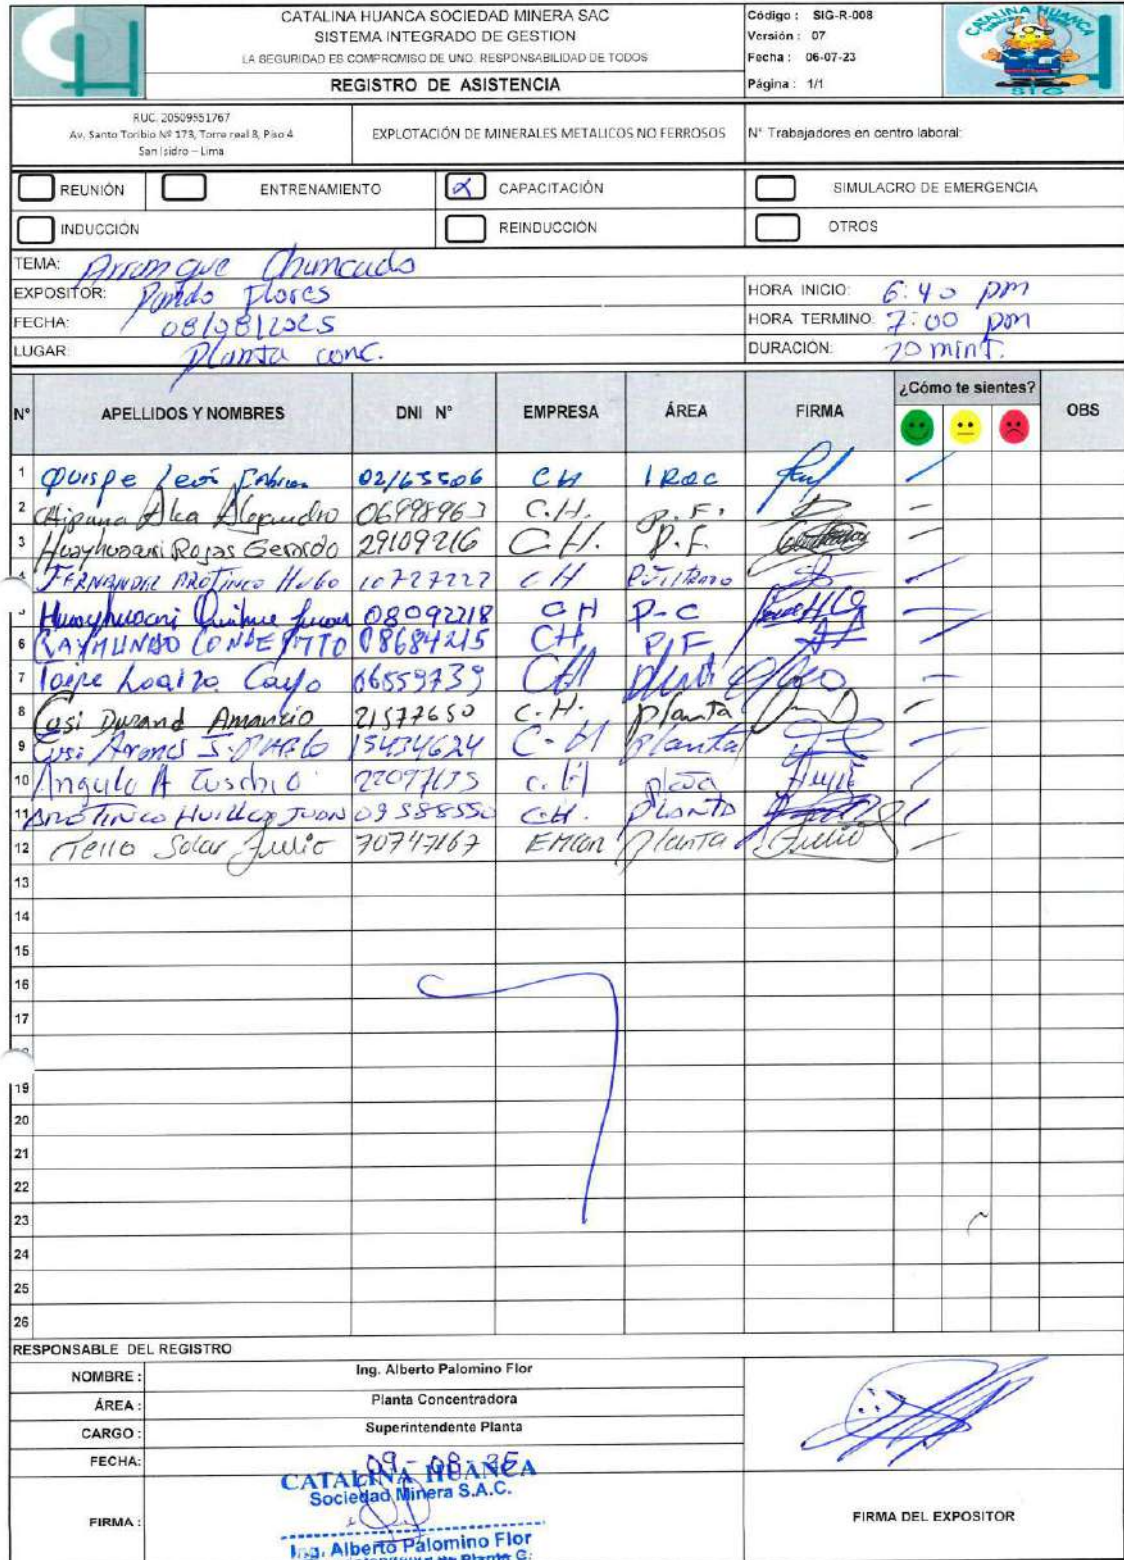 CATALINA HUANCA SOCIEDAD MINERA SAC
SISTEMA INTEGRADO DE GESTION
LA SEGURIDAD ES COMPROMISO DE UNO, RESPONSABILIDAD DE TODOS
REGISTRO DE ASISTENCIA
Código : SIG-R-008
Versión : 07
Fecha : 06-07-23
Página : 1/1
CATALINA HUANCA
SIG
RUC. 20509551767
Av. Santo Toribio Nº 173, Torre real 8, Piso 4
San Isidro – Lima
EXPLOTACIÓN DE MINERALES METALICOS NO FERROSOS
N° Trabajadores en centro laboral:
REUNIÓN ENTRENAMIENTO CAPACITACIÓN SIMULACRO DE EMERGENCIA
INDUCCIÓN REINDUCCIÓN OTROS
TEMA: Arranque Chancado
EXPOSITOR: Pando Flores HORA INICIO: 6:40 pm
FECHA: 08/08/2025 HORA TERMINO: 7:00 pm
LUGAR: Planta conc. DURACIÓN: 20 mint.
N° APELLIDOS Y NOMBRES DNI N° EMPRESA ÁREA FIRMA ¿Cómo te sientes? OBS
1 Quispe León 02165506 CH
2 Chipana Alca Alejandro 06998963 C.H. P.F.
3 Huayhuari Rojas Gerardo 29109216 C.H. P.F.
FERNANDEZ AROTINCO HUGO 10727222 CH
Huayhuari Quihue 08092218 CH P-C
6 RAYMUNDO CONDE TITO 08684215 CH P/F
7 Taipe Loaiza Cayo 06559739 CH
8 Casi Durand Amancio 21577650 C.H. Planta
9 Cusi Arones 15434624 C-H Planta
10 Angulo A Eusebio 22097135 C.H
11 AROTINCO HUILLCA JUAN 09588550 C.H. PLANTA
12 Tello Solar Julio 70747167 Planta Julio
13
14
15
16
17
19
20
21
22
23
24
25
26
RESPONSABLE DEL REGISTRO
NOMBRE : Ing. Alberto Palomino Flor
ÁREA : Planta Concentradora
CARGO : Superintendente Planta
FECHA: 09-08-25
CATALINA HUANCA
Sociedad Minera S.A.C.
FIRMA :
Ing. Alberto Palomino Flor
FIRMA DEL EXPOSITOR